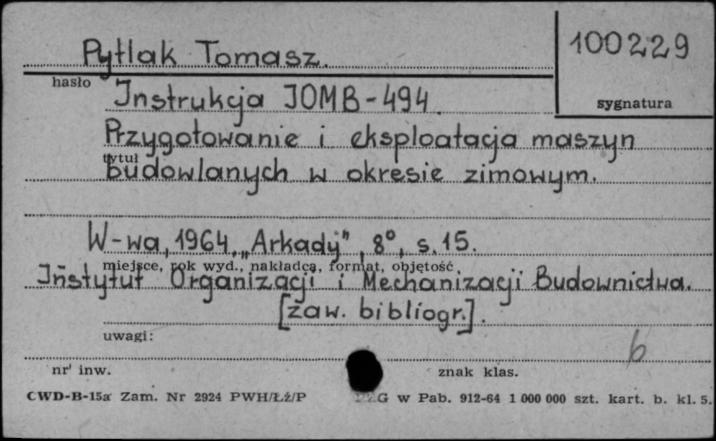 Pytlak Tomasz.
100229
hasło
sygnatura
Instrukcja IOMB-494.
Przygotowanie i eksploatacja maszyn
tytuł
budowlanych w okresie zimowym.
W-wa, 1964, „Arkady", 8°, s. 15.
miejsce, rok wyd., nakładca, format, objętość
Instytut Organizacji i Mechanizacji Budownictwa.
[zaw. bibliogr.].
uwagi:
b
nr inw.
znak klas.
CWD-B-15a Zam. Nr 2924 PWH/Łź/P
G w Pab. 912-64 1 000 000 szt. kart. b. kl. 5.